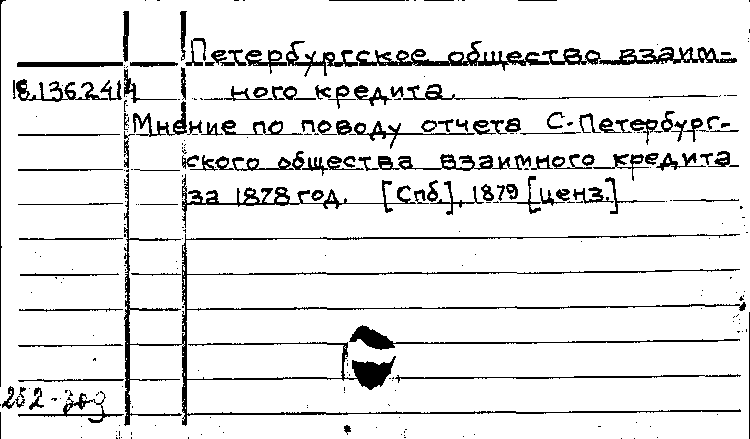 Петербургское общество взаим-
18.136.2.414
ного кредита.
Мнение по поводу отчета С-Петербург-
ского общества взаимного кредита
за 1878 год. [Спб.], 1879 [ценз.]
252-